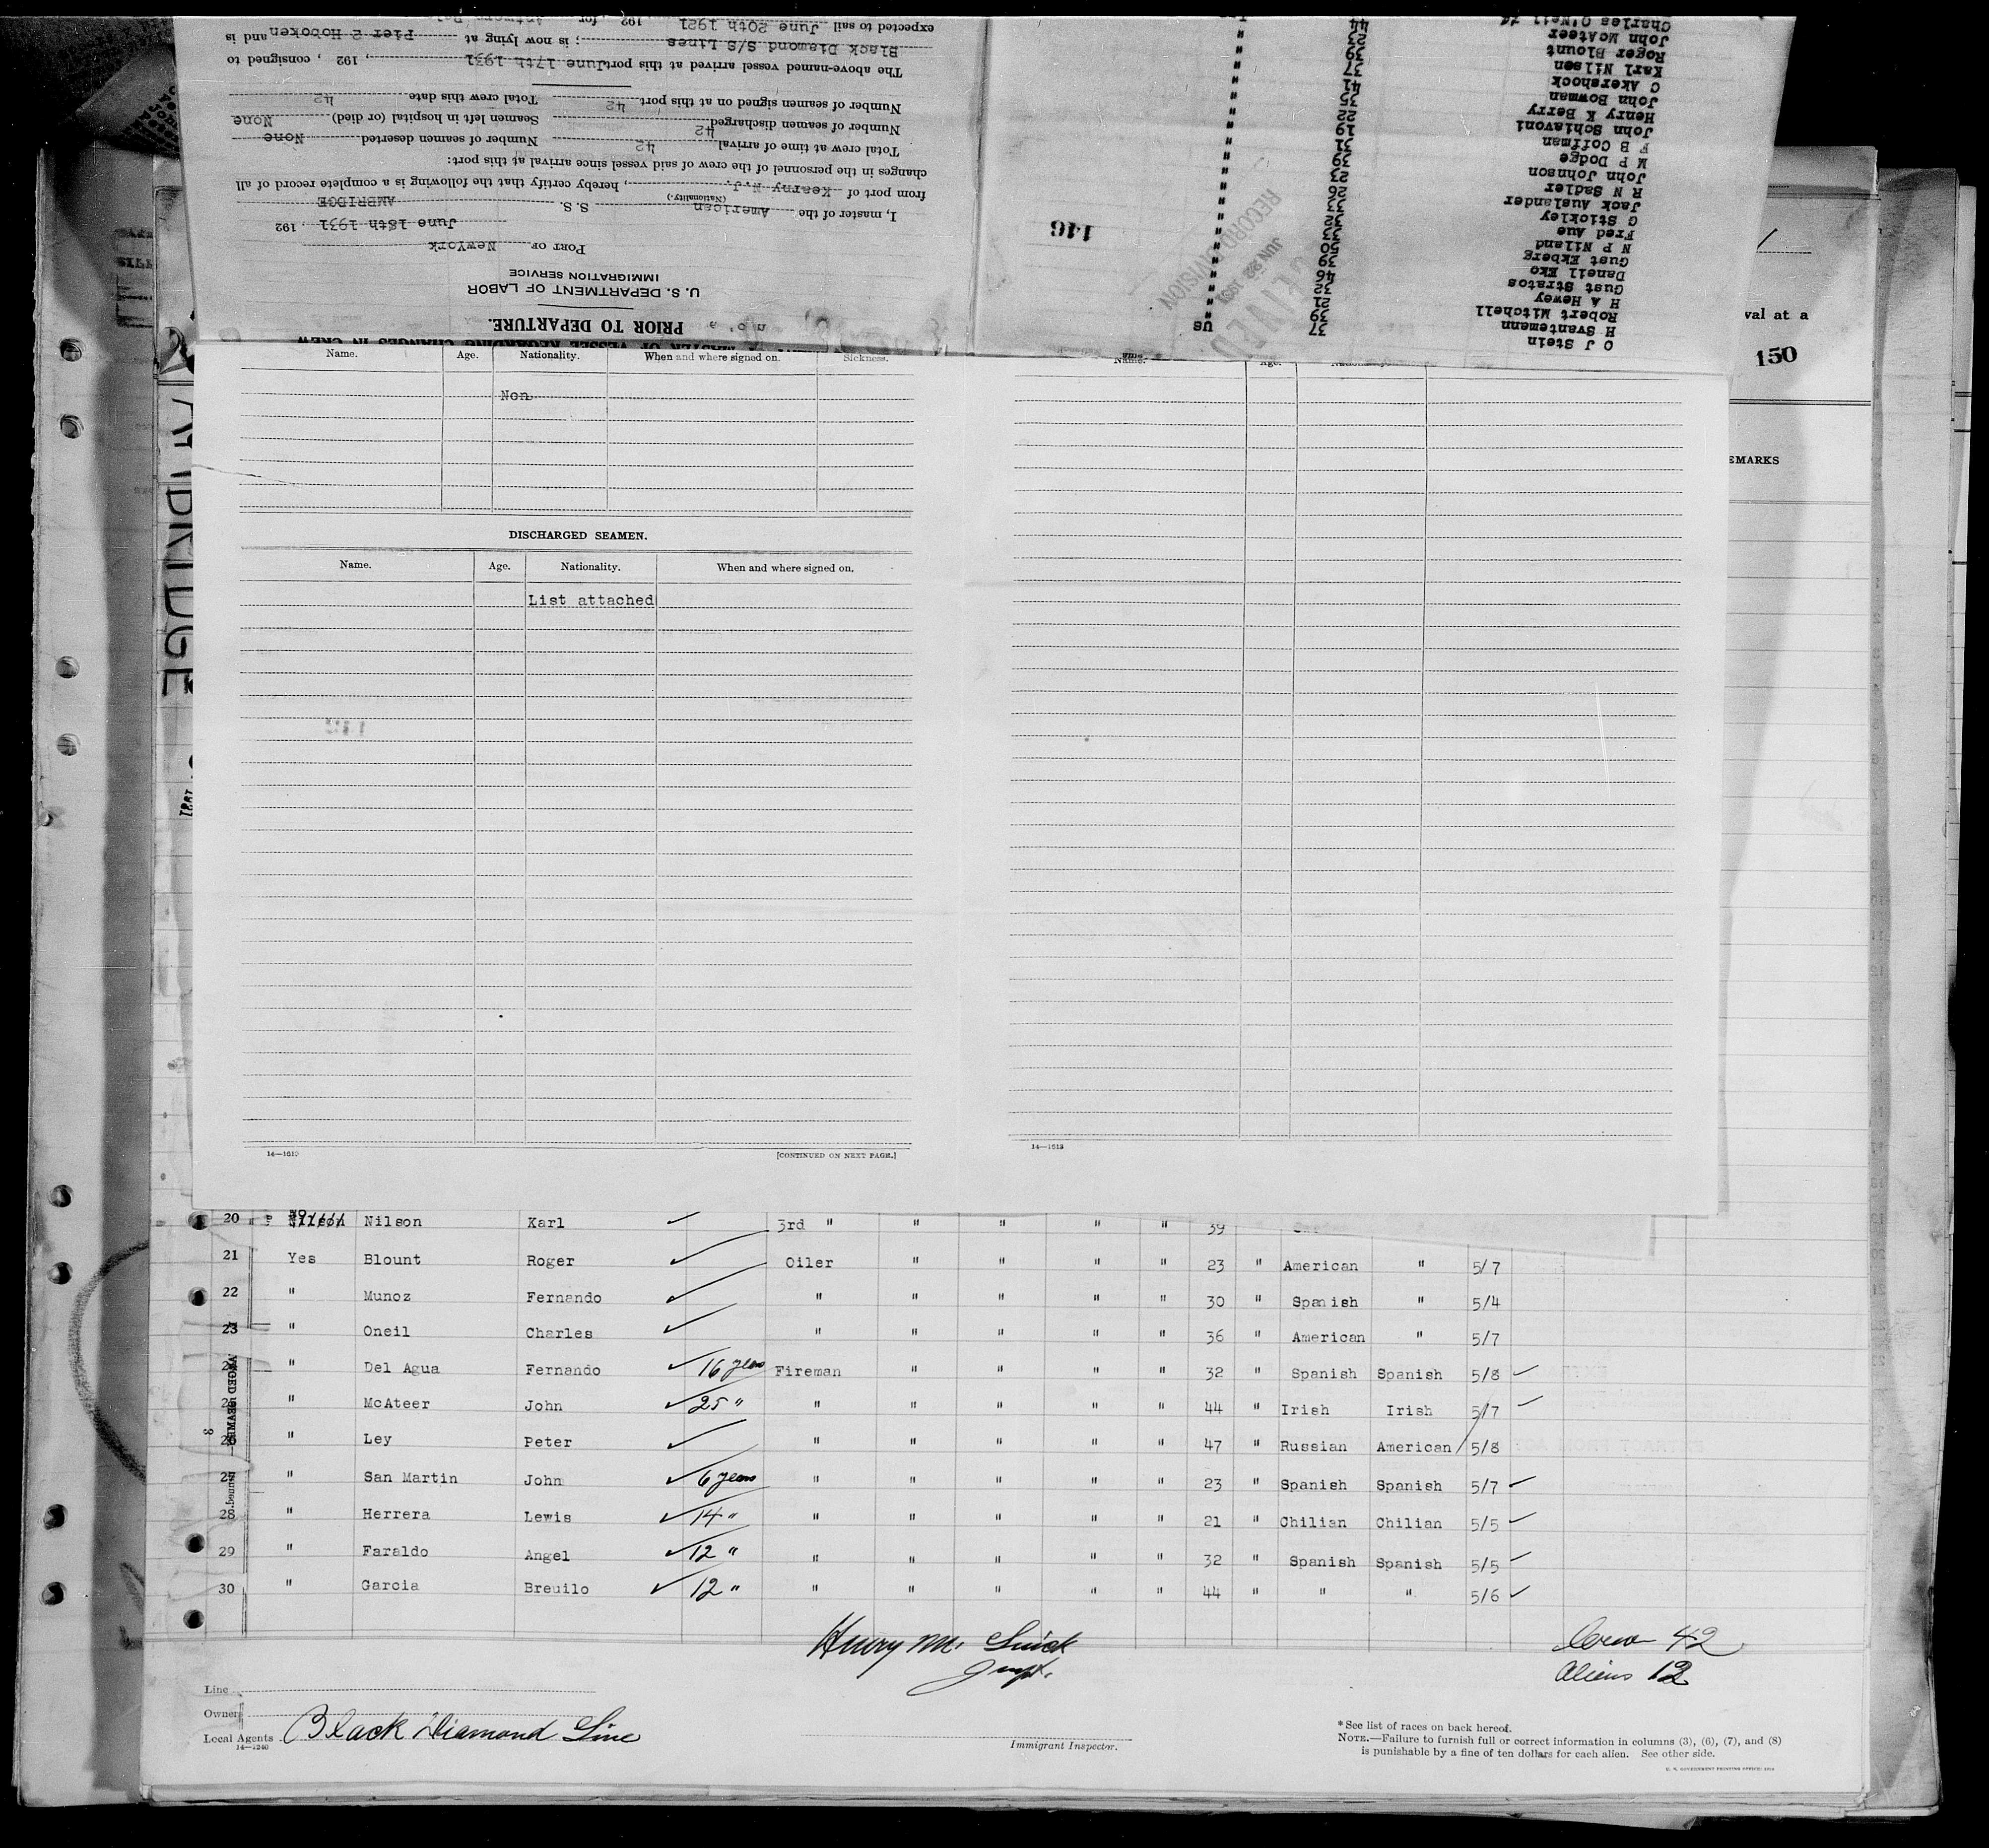 Charles O'Neil 44
John McAteer 23
Roger Blount 39
Karl Nilsen 37
C Akershock 41
John Bowman 35
Henry K Berry 22
John Schiavoni 19
F B Coffman 31
M P Dodge 39
John Johnson 23
R N Sadler 26
Jack Auslander 33
G Stickley 32
Fred Aue 33
N P Niland 50
Gust Ekberg 39
Daneil Eko 46
Gust Stratos 32
H A Hewey 21
Robert Mitchell 39
H Svantemann 37 US
O J Stein
146
RECEIVED
JUN 22 1931
RECORD DIVISION
PRIOR TO DEPARTURE.
U. S. DEPARTMENT OF LABOR
IMMIGRATION SERVICE
PORT OF NewYork
June 18th 1931, 192
I, master of the American S. S. AMBRIDGE
(Nationality.)
from port of Kearny N.J., hereby certify that the following is a complete record of all
changes in the personnel of the crew of said vessel since arrival at this port:
Total crew at time of arrival 42 Number of seamen deserted None
Number of seamen discharged 42 Seamen left in hospital (or died) None
Number of seamen signed on at this port 42 Total crew this date 42
The above-named vessel arrived at this port June 17th 1931, 192 , consigned to
Black Diamond S/S Lines; is now lying at Pier 2 Hoboken and is
expected to sail June 20th 1921 192 for Antwerp
val at a
150
EMARKS
AMBRIDGE
Name. Age. Nationality. When and where signed on. Sickness.
Non
Name. Age.
DISCHARGED SEAMEN.
Name. Age. Nationality. When and where signed on.
List attached
14—1613 [CONTINUED ON NEXT PAGE.]
14—1613
20 Nilson Karl ✓ 3rd " " " " " 39
21 Yes Blount Roger ✓ Oiler " " " " 23 " American " 5/7
22 " Munoz Fernando ✓ " " " " " 30 " Spanish " 5/4
23 " Oneil Charles ✓ " " " " " 36 " American " 5/7
24 " Del Agua Fernando ✓ 16 years Fireman " " " " 32 " Spanish Spanish 5/8 ✓
25 " McAteer John ✓ 25 " " " " " " 44 " Irish Irish 5/7 ✓
26 " Ley Peter ✓ " " " " " 47 " Russian American 5/8
27 " San Martin John ✓ 6 years " " " " " 23 " Spanish Spanish 5/7 ✓
28 " Herrera Lewis ✓ 14 " " " " " " 21 " Chilian Chilian 5/5 ✓
29 " Faraldo Angel ✓ 12 " " " " " " 32 " Spanish Spanish 5/5 ✓
30 " Garcia Breuilo ✓ 12 " " " " " " 44 " " " 5/6 ✓
Henry M.
Crew 42
Aliens 12
Line
Owner
Local Agents Black Diamond Line
14—1240
Immigrant Inspector.
* See list of races on back hereof.
NOTE.—Failure to furnish full or correct information in columns (3), (6), (7), and (8)
is punishable by a fine of ten dollars for each alien. See other side.